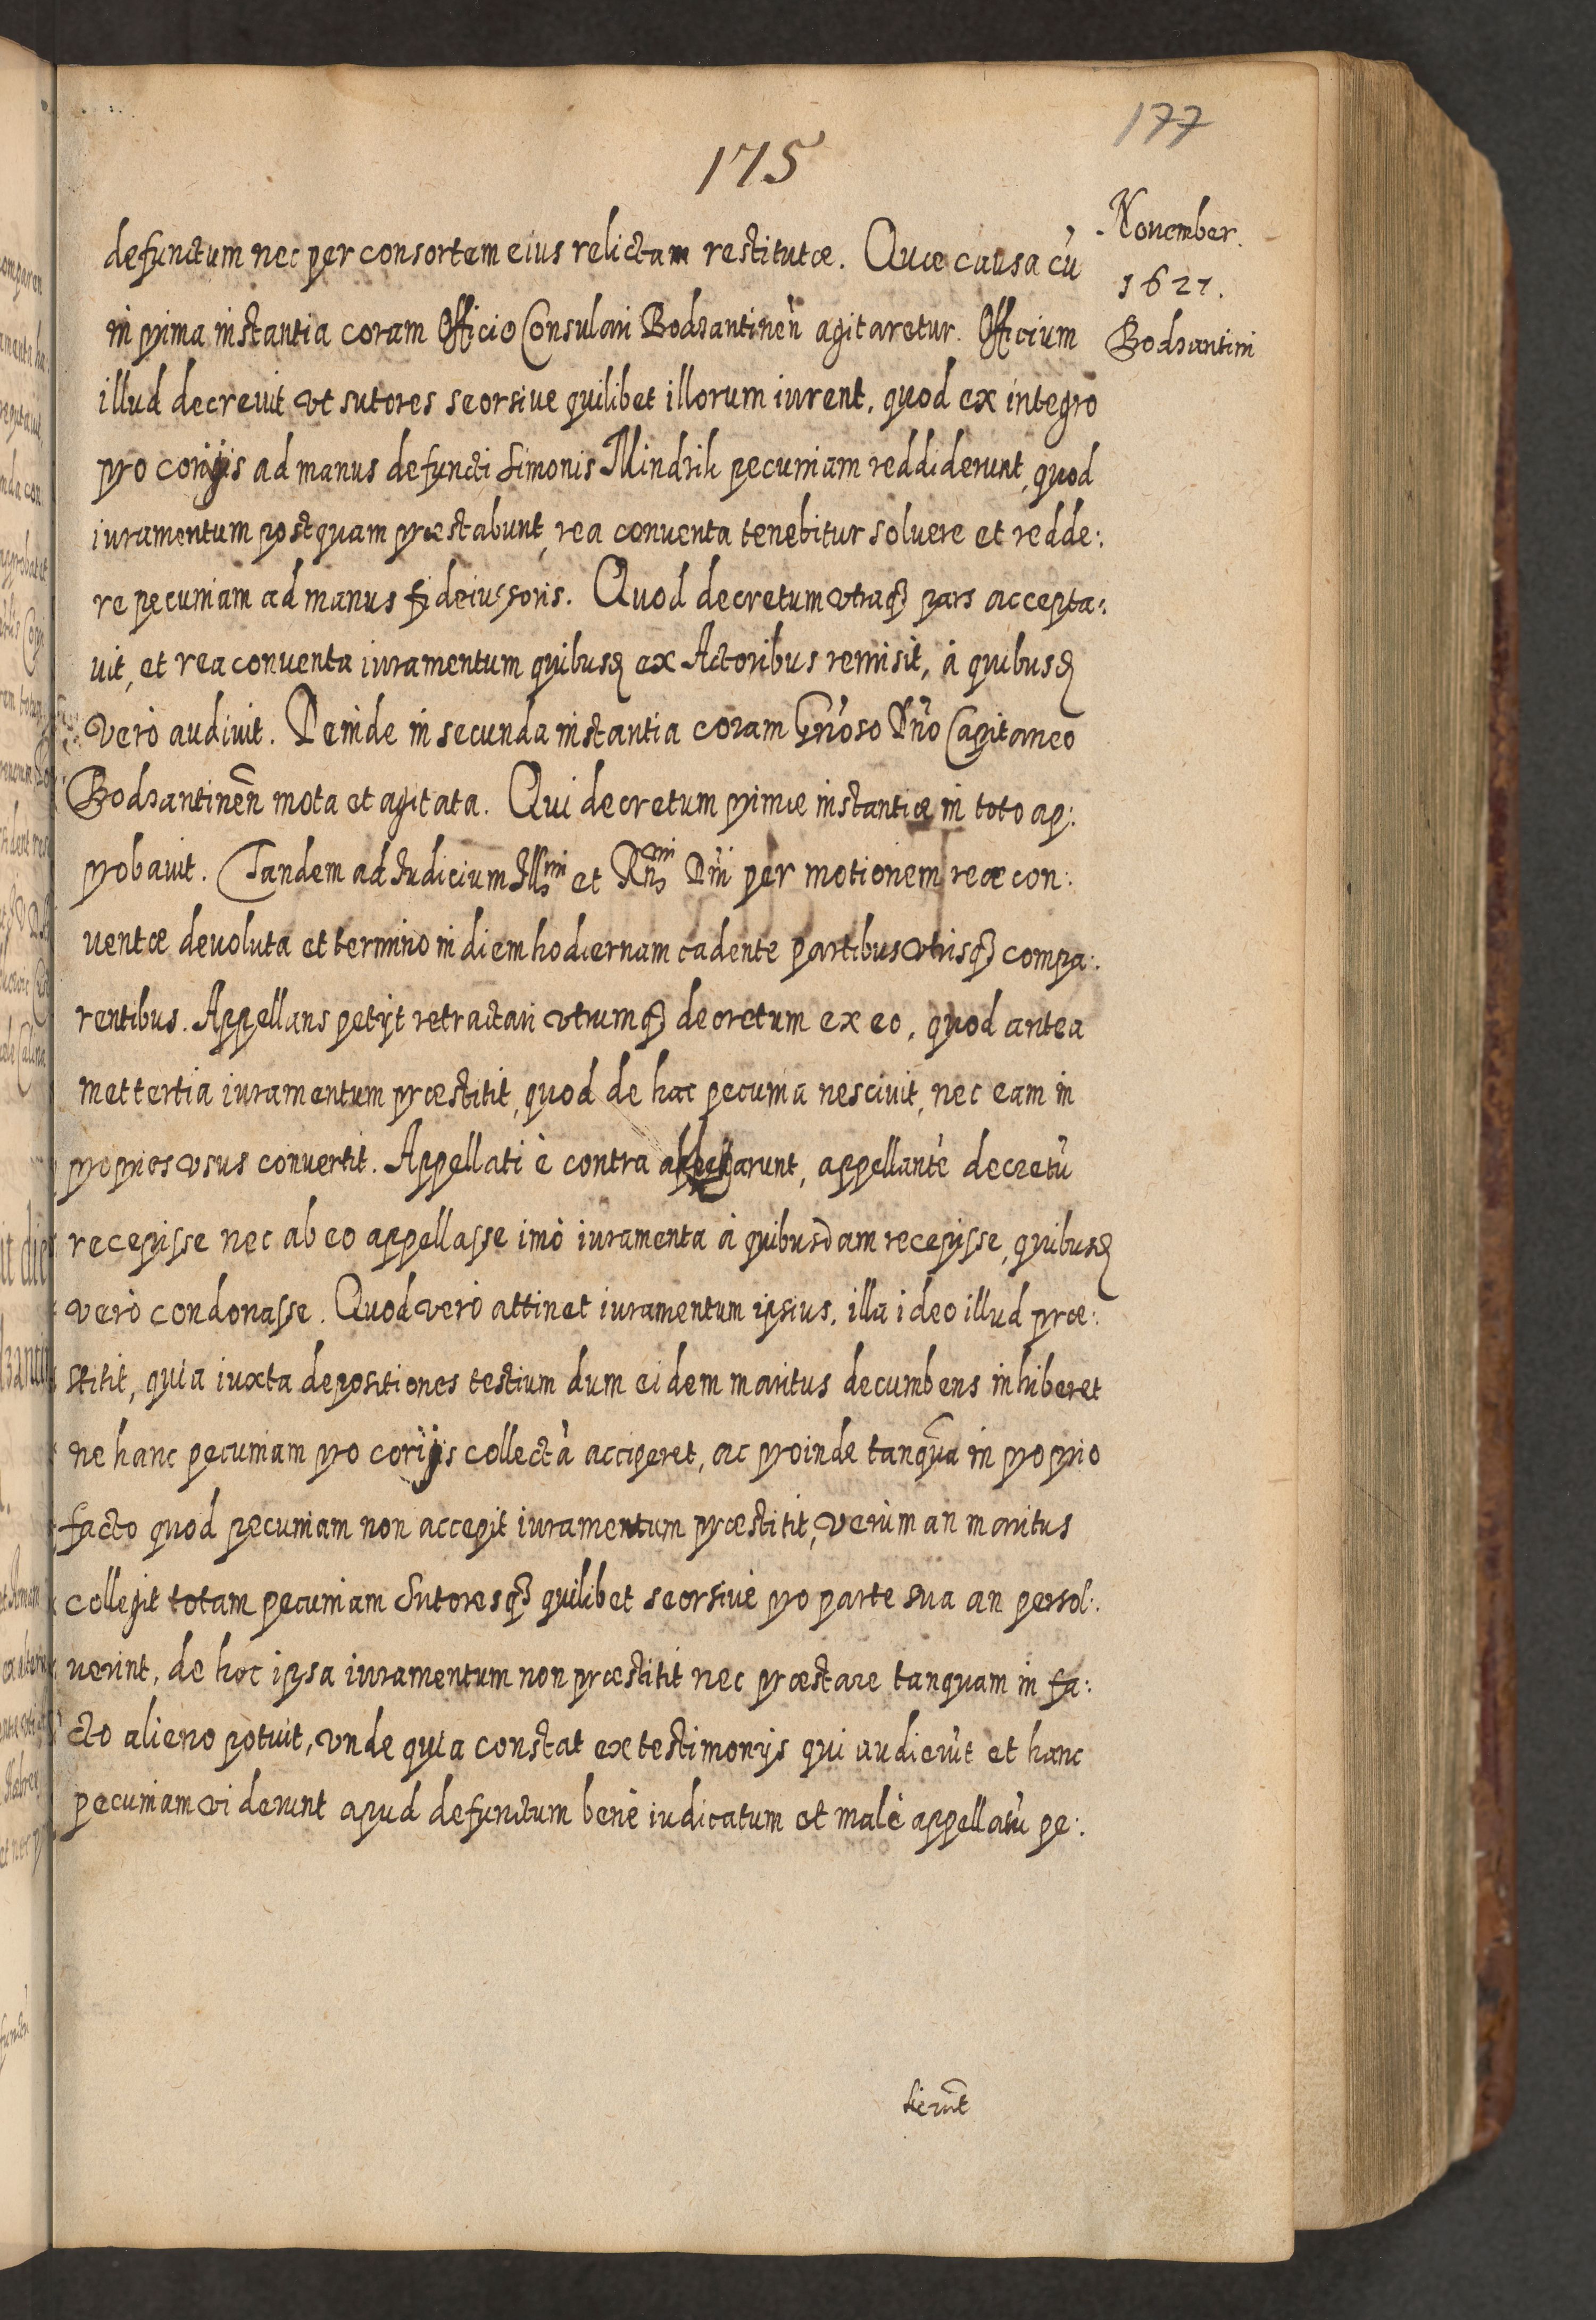 177
175
November.
1621.
Bodzantini
defunctum nec per consortem eius relictam restitutæ. Quæ causa cu̇
in prima instantia coram Officio Consulari Bodzantinen̄ agitaretur. Officium
illud decreuit vt sutores seorsiue quilibet illorum iurent, quod ex integro
pro corijs ad manus defuncti Simonis Mindzik pecuniam reddiderunt, quod
iuramentum postquam præstabunt, rea conuenta tenebitur soluere et redde:
re pecuniam ad manus fideiussoris. Quod decretum vtraqȝ pars accepta:
uit, et rea conuenta iuramentum quibusd ex Actoribus remisit, à quibusd
verò audiuit. Deinde in secunda instantia coram Gn̄oso Dn̄o Capitaneo
Bodzantinen̄ mota et agitata. Qui decretum primæ instantiæ in toto ap:
probauit. Tandem ad Iudicium Illmi et Rndmi Dn̄i per motionem reæ con:
uentæ deuoluta et termino in diem hodiernam cadente partibus vtrisqȝ compa:
rentibus. Appellans petijt retractari vtrumqȝ decretum ex eo, quod antea
mettertia iuramentum præstitit, quod de hac pecunia nesciuit, nec eam in
proprios vsus conuertit. Appellati è contra allegarunt, appellante̅ decretu̇
recepisse nec ab eo appellasse imò iuramenta à quibusdam recepisse, quibusd
verò condonasse. Quod verò attinet iuramentum ipsius, illa ideo illud præ:
stitit, quia iuxta depositiones testium dum eidem maritus decumbens inhiberet
ne hanc pecuniam pro corijs collecta̅ acciperet, ac proinde tanqua̅ in proprio
facto quod pecuniam non accepit iuramentum præstitit, verùm an maritus
collegit totam pecuniam Sutoresqȝ quilibet seorsiuè pro parte sua an persol:
uerint, de hoc ipsa iuramentum non præstitit nec præstare tanquam in fa:
cto alieno potuit, vnde quia constat ex testimonijs qui audieru̇t et hanc
pecuniam viderunt apud defunctum benè iudicatum et malè appellatu̇ pe:
tieru̅t